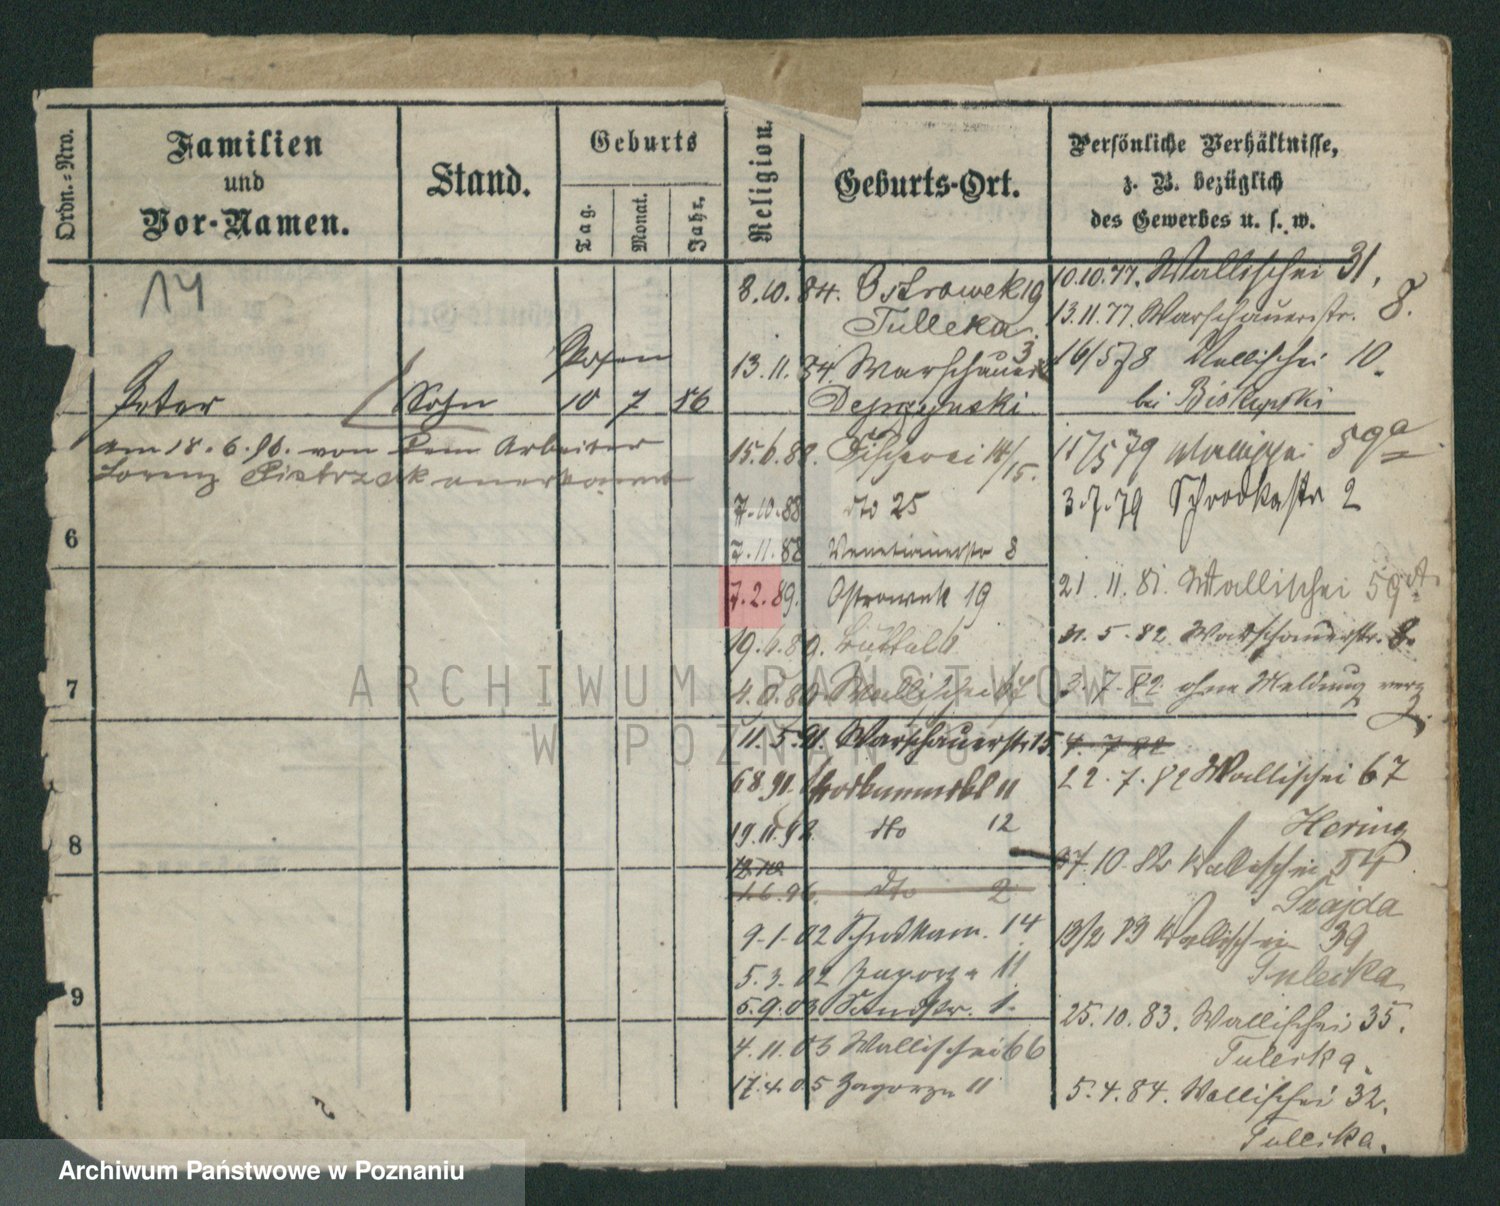 Ordn.-Nro.
Familien
und
Vor-Namen.
Stand.
Geburts
Tag.
Monat.
Jahr.
Religion.
Geburts-Ort.
Persönliche Verhältnisse,
z. B. bezüglich
des Gewerbes u. s. w.
14
Posen
Peter Sohn 10 7 86
am 18.6.86. von dem Arbeiter
Lorenz Pietrzak anerkannt
6
7
8
9
8.10.84. Ostrowek 19
Tulleka.
13.11.84 Warschauerst 3
15.6.88. Fischerei 14/15.
7.10.88 dto 25
7.11.88 Venetianerstr 8
7.2.89. Ostrowek 19
19.6.89.
Wallischei 67
11.5.91. Warschauerstr 15
6.8.91. 11
19.11.92. dto 12
1.6.96. dto 2
9.1.02 14
5.3.02 Zagorze 11
5.9.03 1.
4.11.03 Wallischei 66
17.4.05 Zagorze 11
10.10.77. Wallischei 31,
13.11.77. Warschauerstr. 8.
16/5 78 Wallischei 10.
bei Biskupski
15/5 79 Wallischei 59a
3.7.79 Schrodkastr 2
21.11.81. Wallischei 59a.
31.5.82 Warschauerstr. 8.
3.7.82 ohne Meldung verz.
4.7.82
22.7.82 Wallischei 67
Hering
27.10.82 Wallischei 54
Svajda
13/2 83 Wallischei 39
Tuleika
25.10.83. Wallischei 35.
Tuleika.
5.4.84. Wallischei 32.
Tulleika.
ARCHIWUM PAŃSTWOWE
W POZNANIU
Archiwum Państwowe w Poznaniu